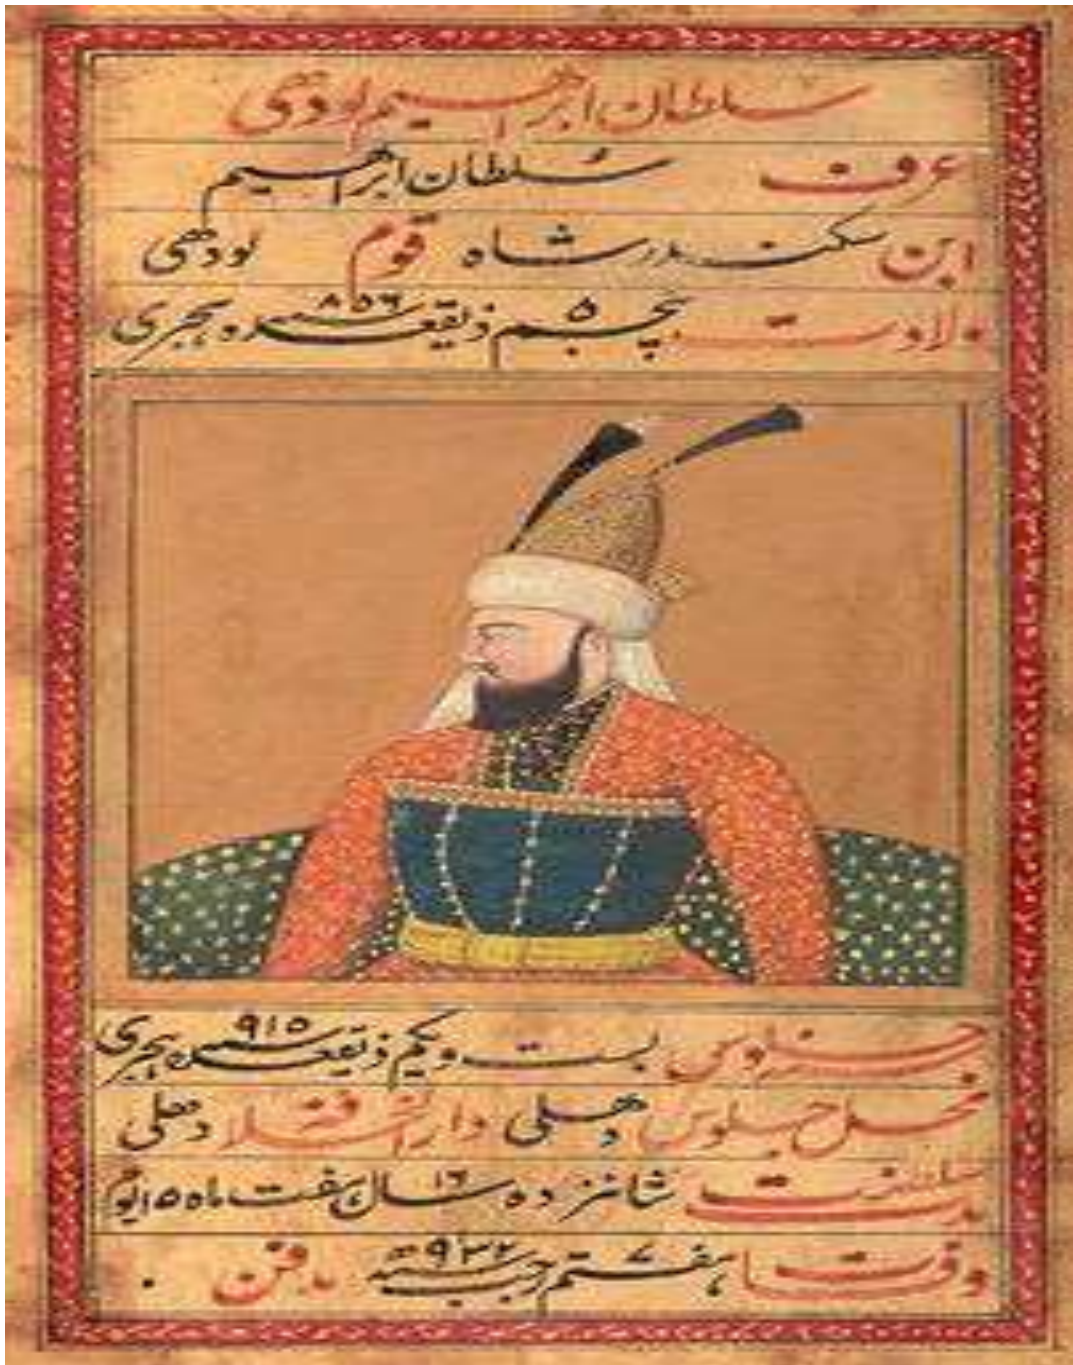 سلطان ابراهیم لودهی
عرف سُلطان ابراهیم
ابن سکندر شاه قوم لودهی
ولادت پنجم ۵ ذیقعده سنه ۸۵۶ هجری
جلوس بست و یکم ذیقعده سنه ۹۱۵ هجری
محل جلوس دهلی دار الخلافة دهلی
مدت سلطنت شانزده ۱۶ سال هفت ماه ۱۵ یوم
وفات هفتم ۷ رجب سنه ۹۳۲ مدفن